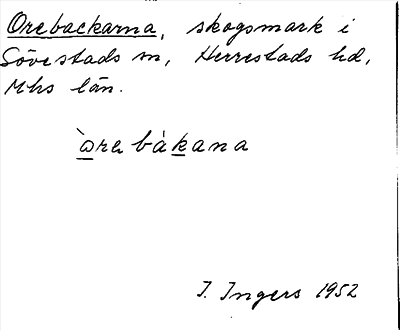 Orebackarna, skogsmark i
Sövestads sn, Herrestads hd,
Mhs län.
òrebàkana
I. Ingers 1952